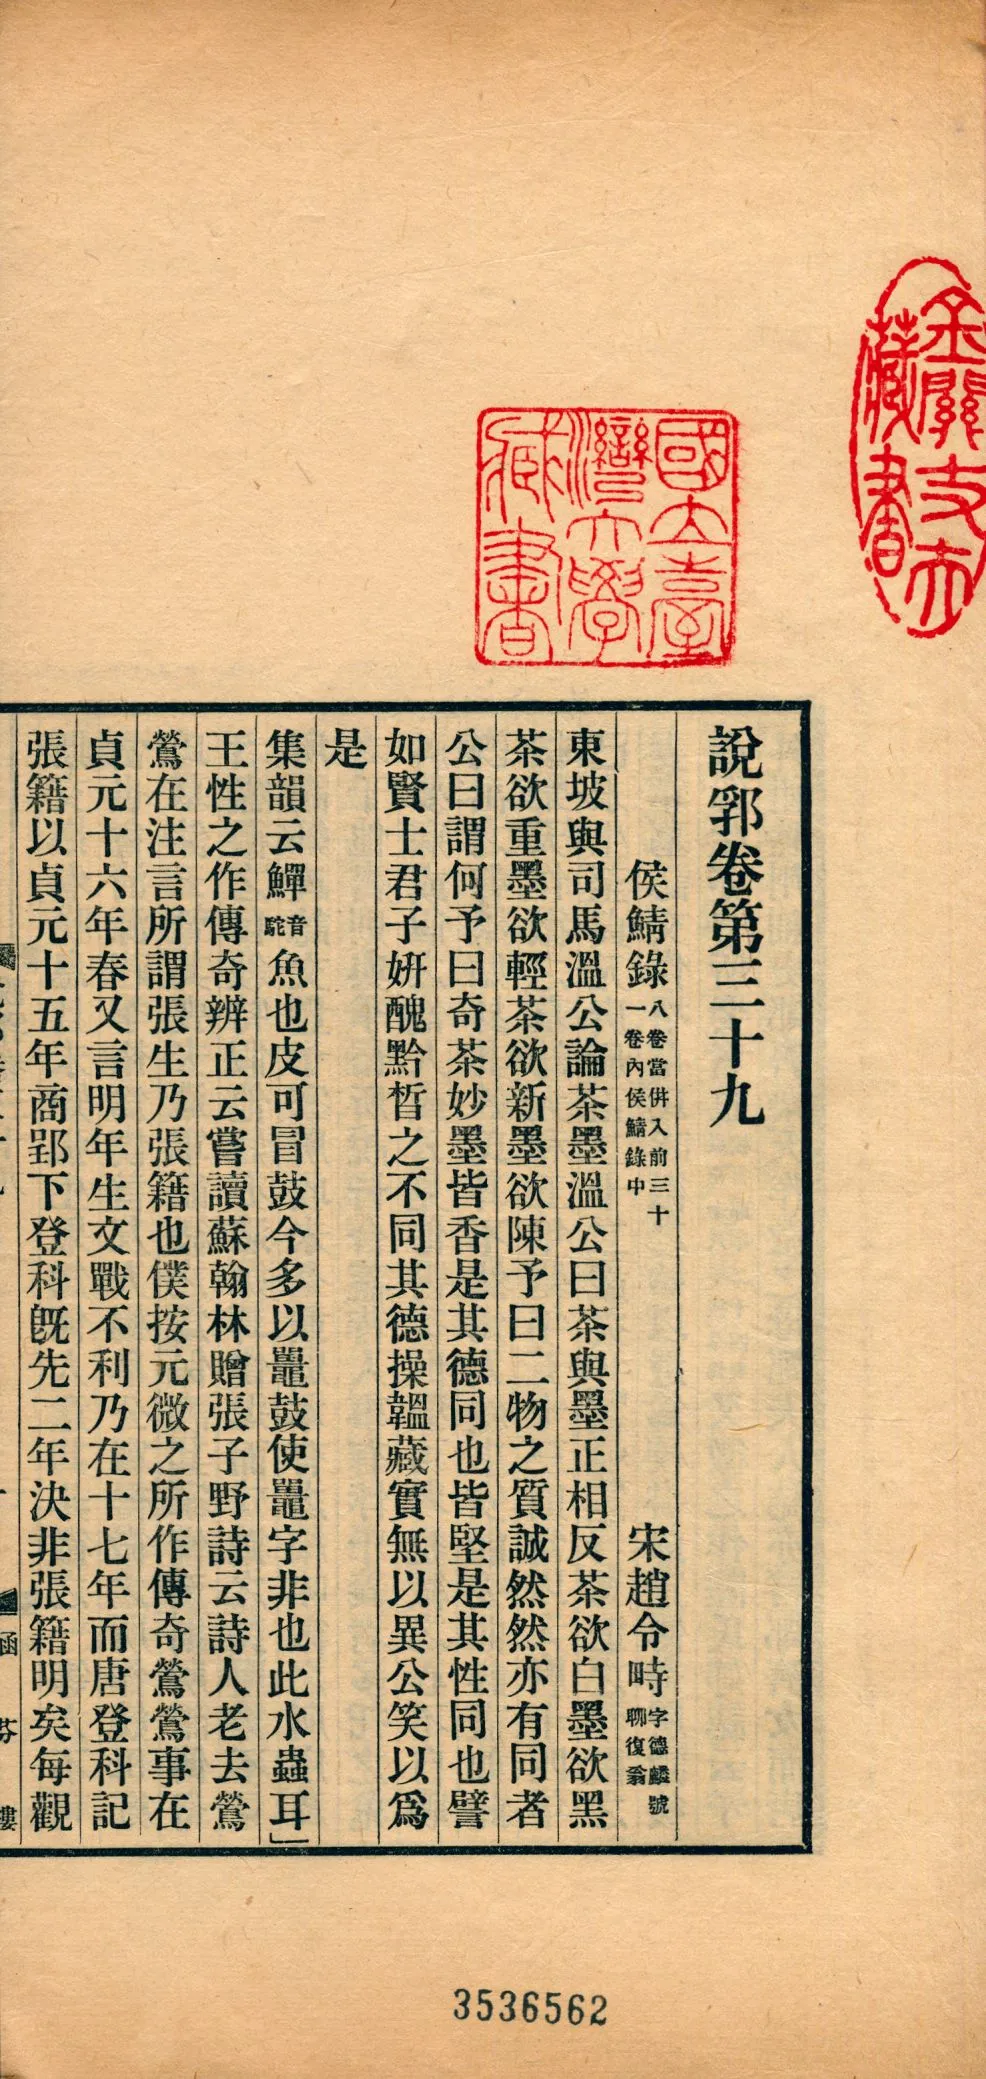 說郛卷第三十九
侯鯖錄 八卷當併入前三十一卷內侯鯖錄中 宋趙令時 字德麟號聊復翁
東坡與司馬溫公論茶墨溫公曰茶與墨正相反茶欲白墨欲黑
茶欲重墨欲輕茶欲新墨欲陳予曰二物之質誠然然亦有同者
公曰謂何予曰奇茶妙墨皆香是其德同也皆堅是其性同也譬
如賢士君子妍醜黔皙之不同其德操韞藏實無以異公笑以爲
是
集韻云鱓音駝魚也皮可冒鼓今多以鼉鼓使鼉字非也此水蟲耳」
王性之作傳奇辨正云嘗讀蘇翰林贈張子野詩云詩人老去鶯
鶯在注言所謂張生乃張籍也僕按元微之所作傳奇鶯鶯事在
貞元十六年春又言明年生文戰不利乃在十七年而唐登科記
張籍以貞元十五年商郢下登科旣先二年決非張籍明矣每觀
國立臺灣大學藏書
藏書
3536562